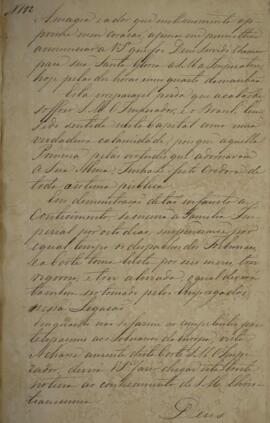 A magoa e a dor que n'este momento op-
prime meu coração, apenas me permittem
annunciar a VSª que foi Deus Servido chamar
para sua Santa Gloria a S. M. a Imperatriz
hoje pelas duas horas e um quarto da manhã.
Esta irreparavel perda que acaba de
soffrer S. M. O Imperador, e o Brasil, tem
sido sentida nesta Capital como uma
verdadeira calamidade, porque aquella
Princeza pelas virtudes que adornavam
a Sua Alma, tinha de facto Credora de
toda estima publica.
Em demonstração de tão infausto a-
contecimento se encerra a Familia Im-
perial por oito dias, suspensos por
igual tempo os despachos dos Tribunaes,
e a Corte toma luto por seis mezes, tres
rigoroso, e tres alliviado, o qual deverá
tambem ser tomado pelos Empregados
nessa Legação.
Emquanto não se fazem as competentes par-
ticipações aos Soberanos da Europa, visto
achar-se ausente desta Corte S. M. O Impe-
rador, deverá VSª fazer chegar esta triste
noticia ao conhecimento de S. M.
Deus